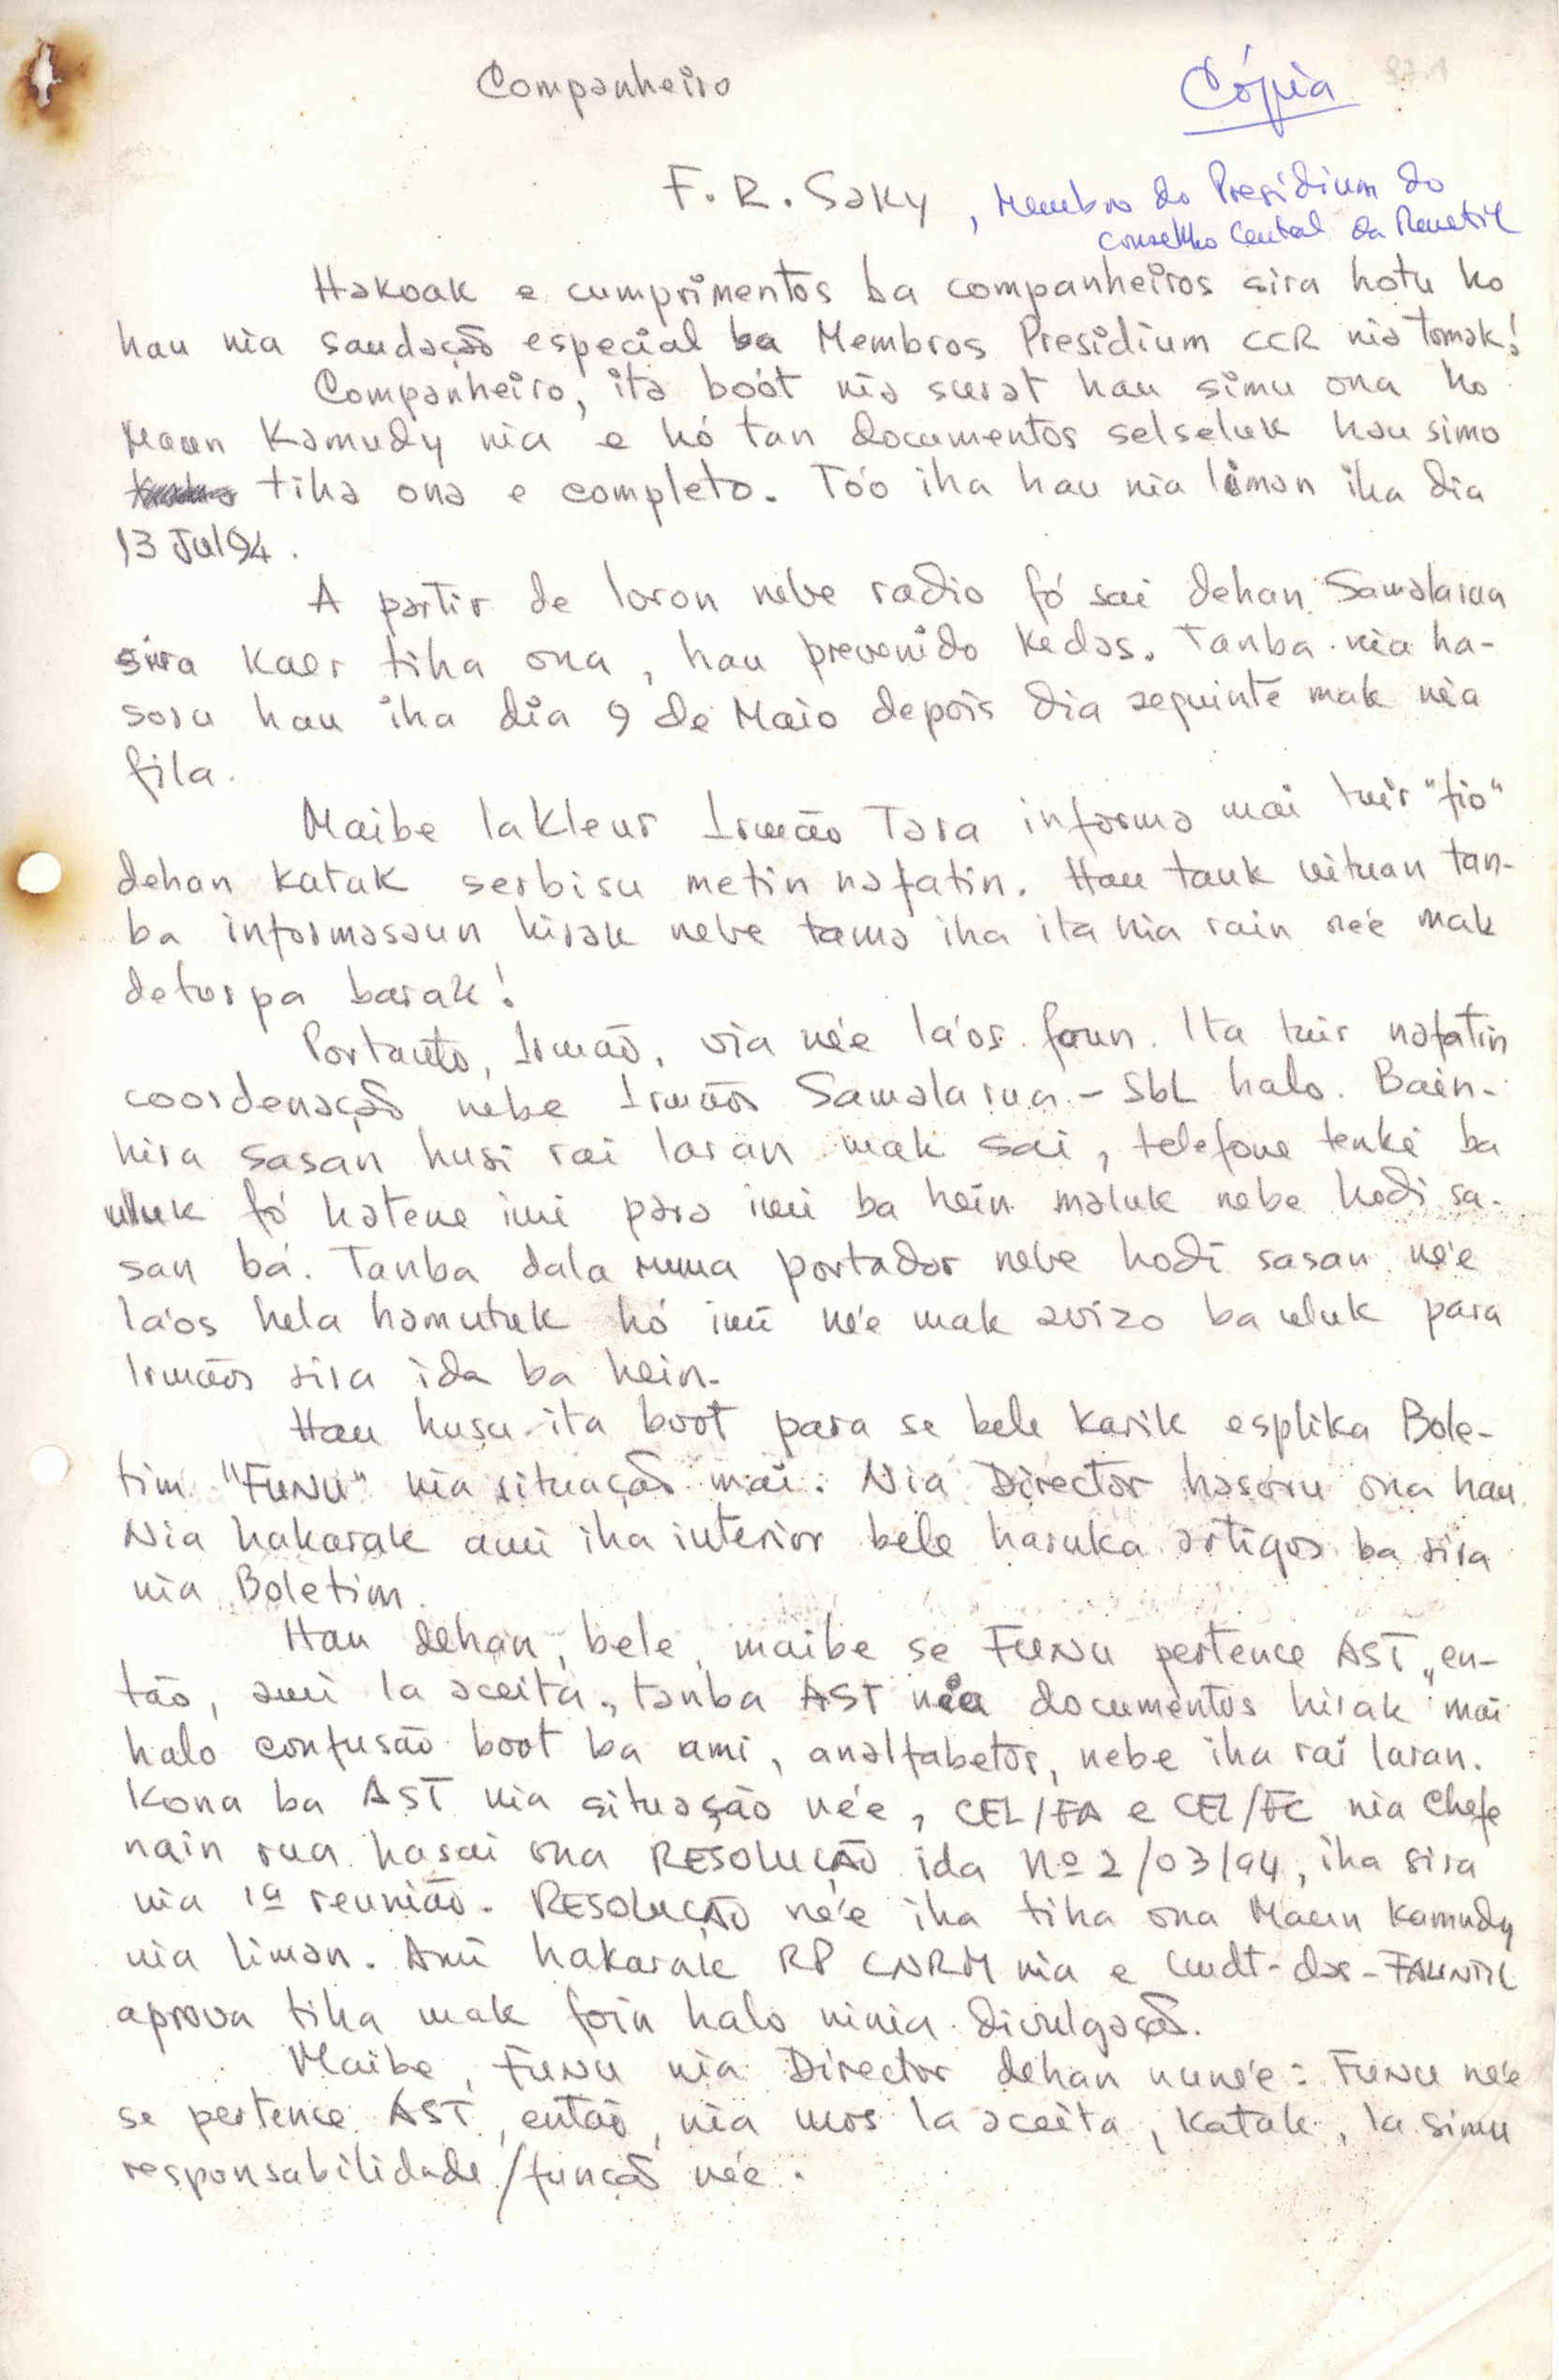 Companheiro
Cópia
F. R. Saky, Membro do Presidium do
Conselho Central da Renetil
Hakoak e cumprimentos ba companheiros sira hotu ho
hau nia saudação especial ba Membros Presidium CCR nia tomak!
Companheiro, ita boót nia surat hau simu ona ho
Maun Kamudy nia e hó tan documentos selseluk hau simo
tiha ona e completo. Tóo iha hau nia liman iha dia
13 Jul94.
A partir de loron nebe radio fó sai dehan Samalarua
sira kaer tiha ona, hau prevenido kedas. Tanba nia ha-
soru hau iha dia 9 de Maio depois dia seguinte mak nia
fila.
Maibe lakleur Irmão Tara informa mai tuir "fio"
dehan katak serbisu metin nafatin. Hau tauk uituan tan-
ba informasaun hirak nebe tama iha ita nia rain née mak
deturpa barak!
Portanto, Irmão, via née láos foun. Ita tuir nafatin
coordenação nebe Irmãos Samalarua - SbL halo. Bain-
hira sasan husi rai laran mak sai, telefone tenki ba
uluk fó hatene imi para imi ba hein maluk nebe hodi sa-
san bá. Tanba dala ruma portador nebe hodi sasan née
láos hela hamutuk hó imi née mak avizo ba uluk para
Irmãos sira ida ba hein.
Hau husu ita boot para se bele karik esplika Bole-
tim "FUNU" nia situação mai. Nia Director hasoru ona hau.
Nia hakarak ami iha interior bele haruka artigos ba sira
nia Boletim.
Hau dehan, bele, maibe se FUNU pertence AST, en-
tão, ami la aceita, tanba AST nia documentos hirak mai
halo confusão boot ba ami, analfabetos, nebe iha rai laran.
Kona ba AST nia situação née, CEL/FA e CEL/FC nia Chefe
nain rua hasai ona RESOLUÇÃO ida Nº 2/03/94, iha sira
nia 1ª reunião. RESOLUÇÃO née iha tiha ona Maun Kamudy
nia liman. Ami hakarak RP CNRM nia e Cmdt-das-FALINTIL
aprova tiha mak foin halo ninia divulgação.
Maibe, FUNU nia Director dehan nunée: FUNU née
se pertence AST, então, nia mos la aceita, katak, la simu
responsabilidade/função née.